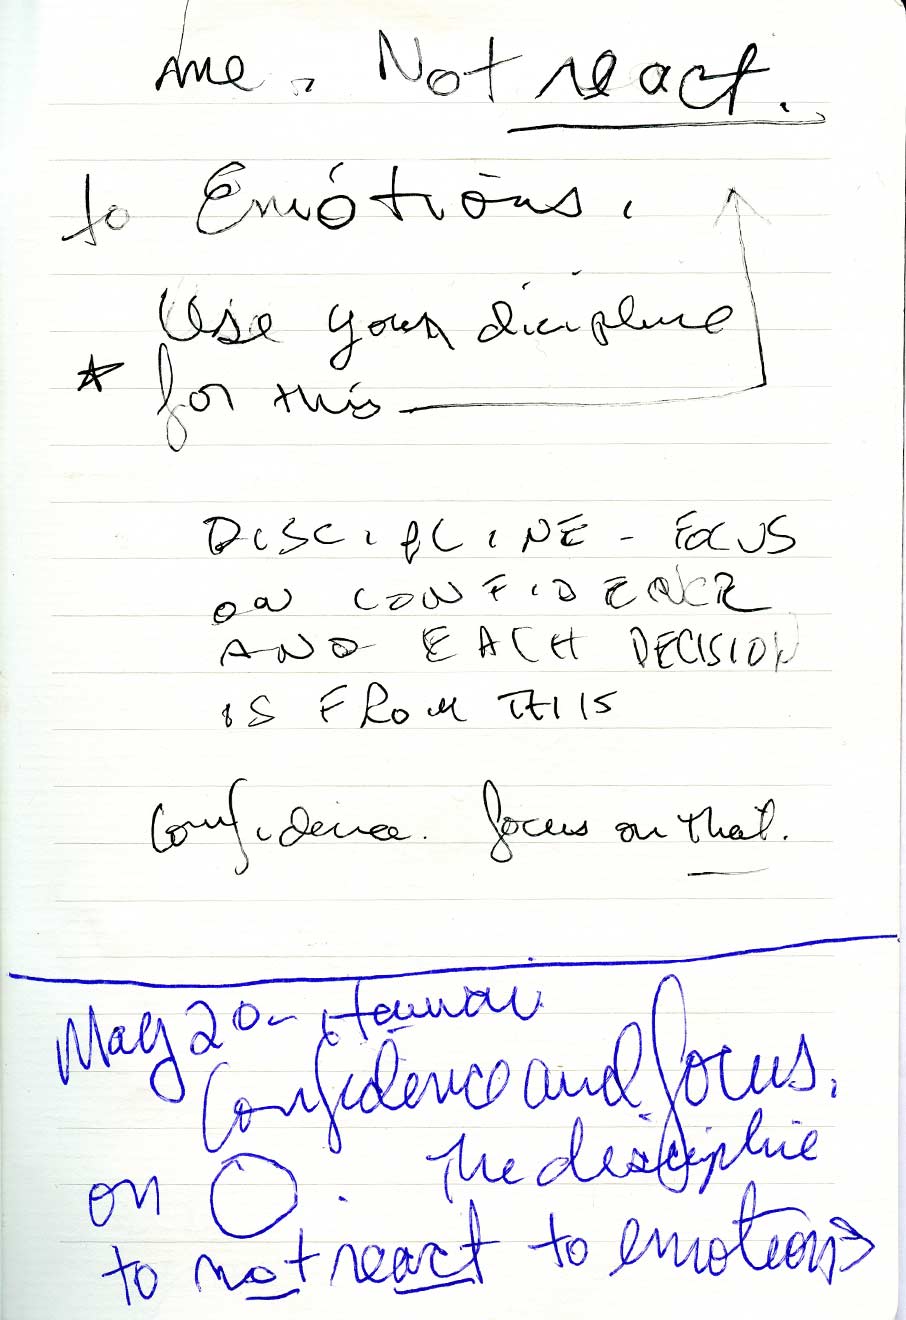 me. Not react.
to Emotions.
Use your dicipline
for this
DISCIPLINE - FOCUS
ON CONFIDENCE
AND EACH DECISION
IS FROM THIS
Confidence. focus on that.
May 20 - Hawaii
Confidence and focus.
on O. The discipline
to not react to emotions